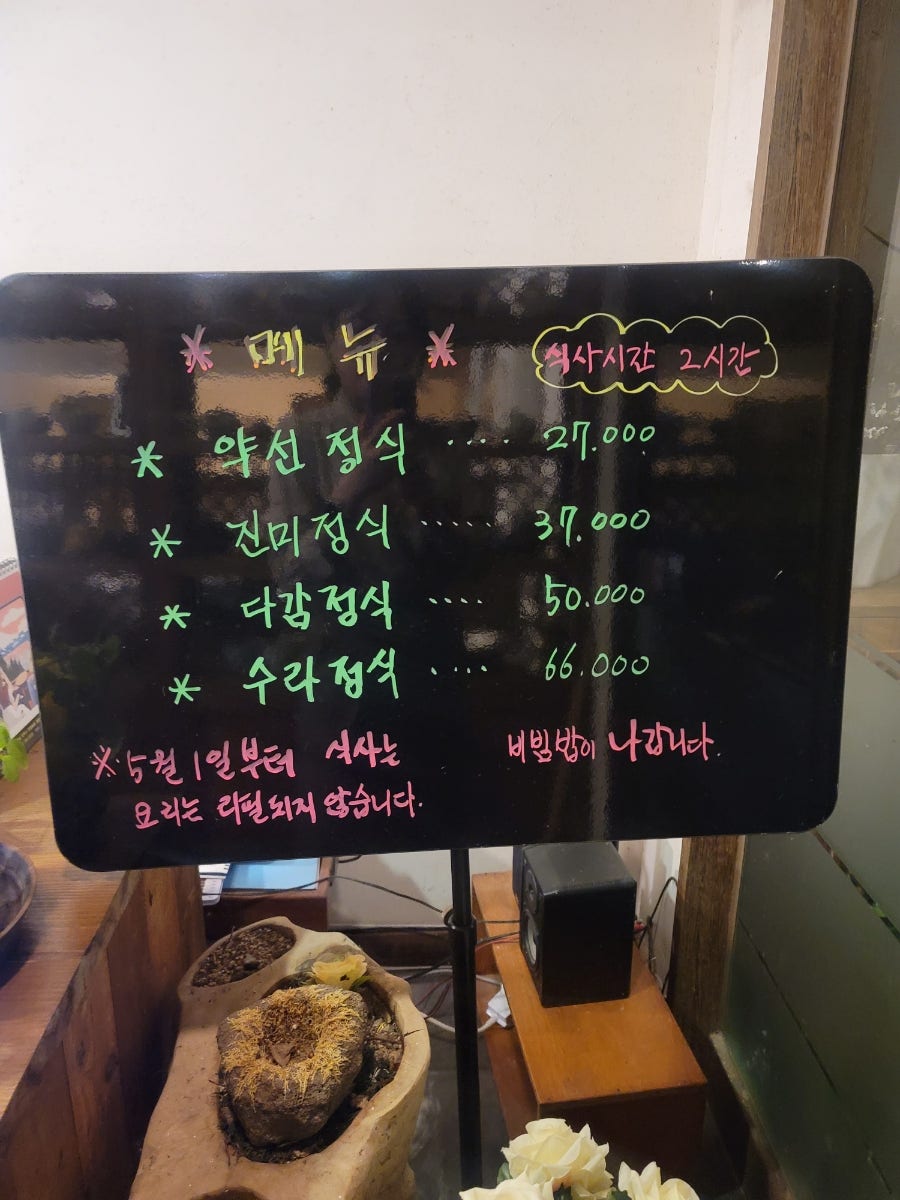 * 메뉴 * 식사시간 2시간
* 약선 정식 ···· 27.000
* 진미정식 ····· 37.000
* 다감정식 ···· 50.000
* 수라정식 ···· 66.000
※ 5월 1일부터 식사는 비빔밥이 나갑니다.
요리는 리필되지 않습니다.